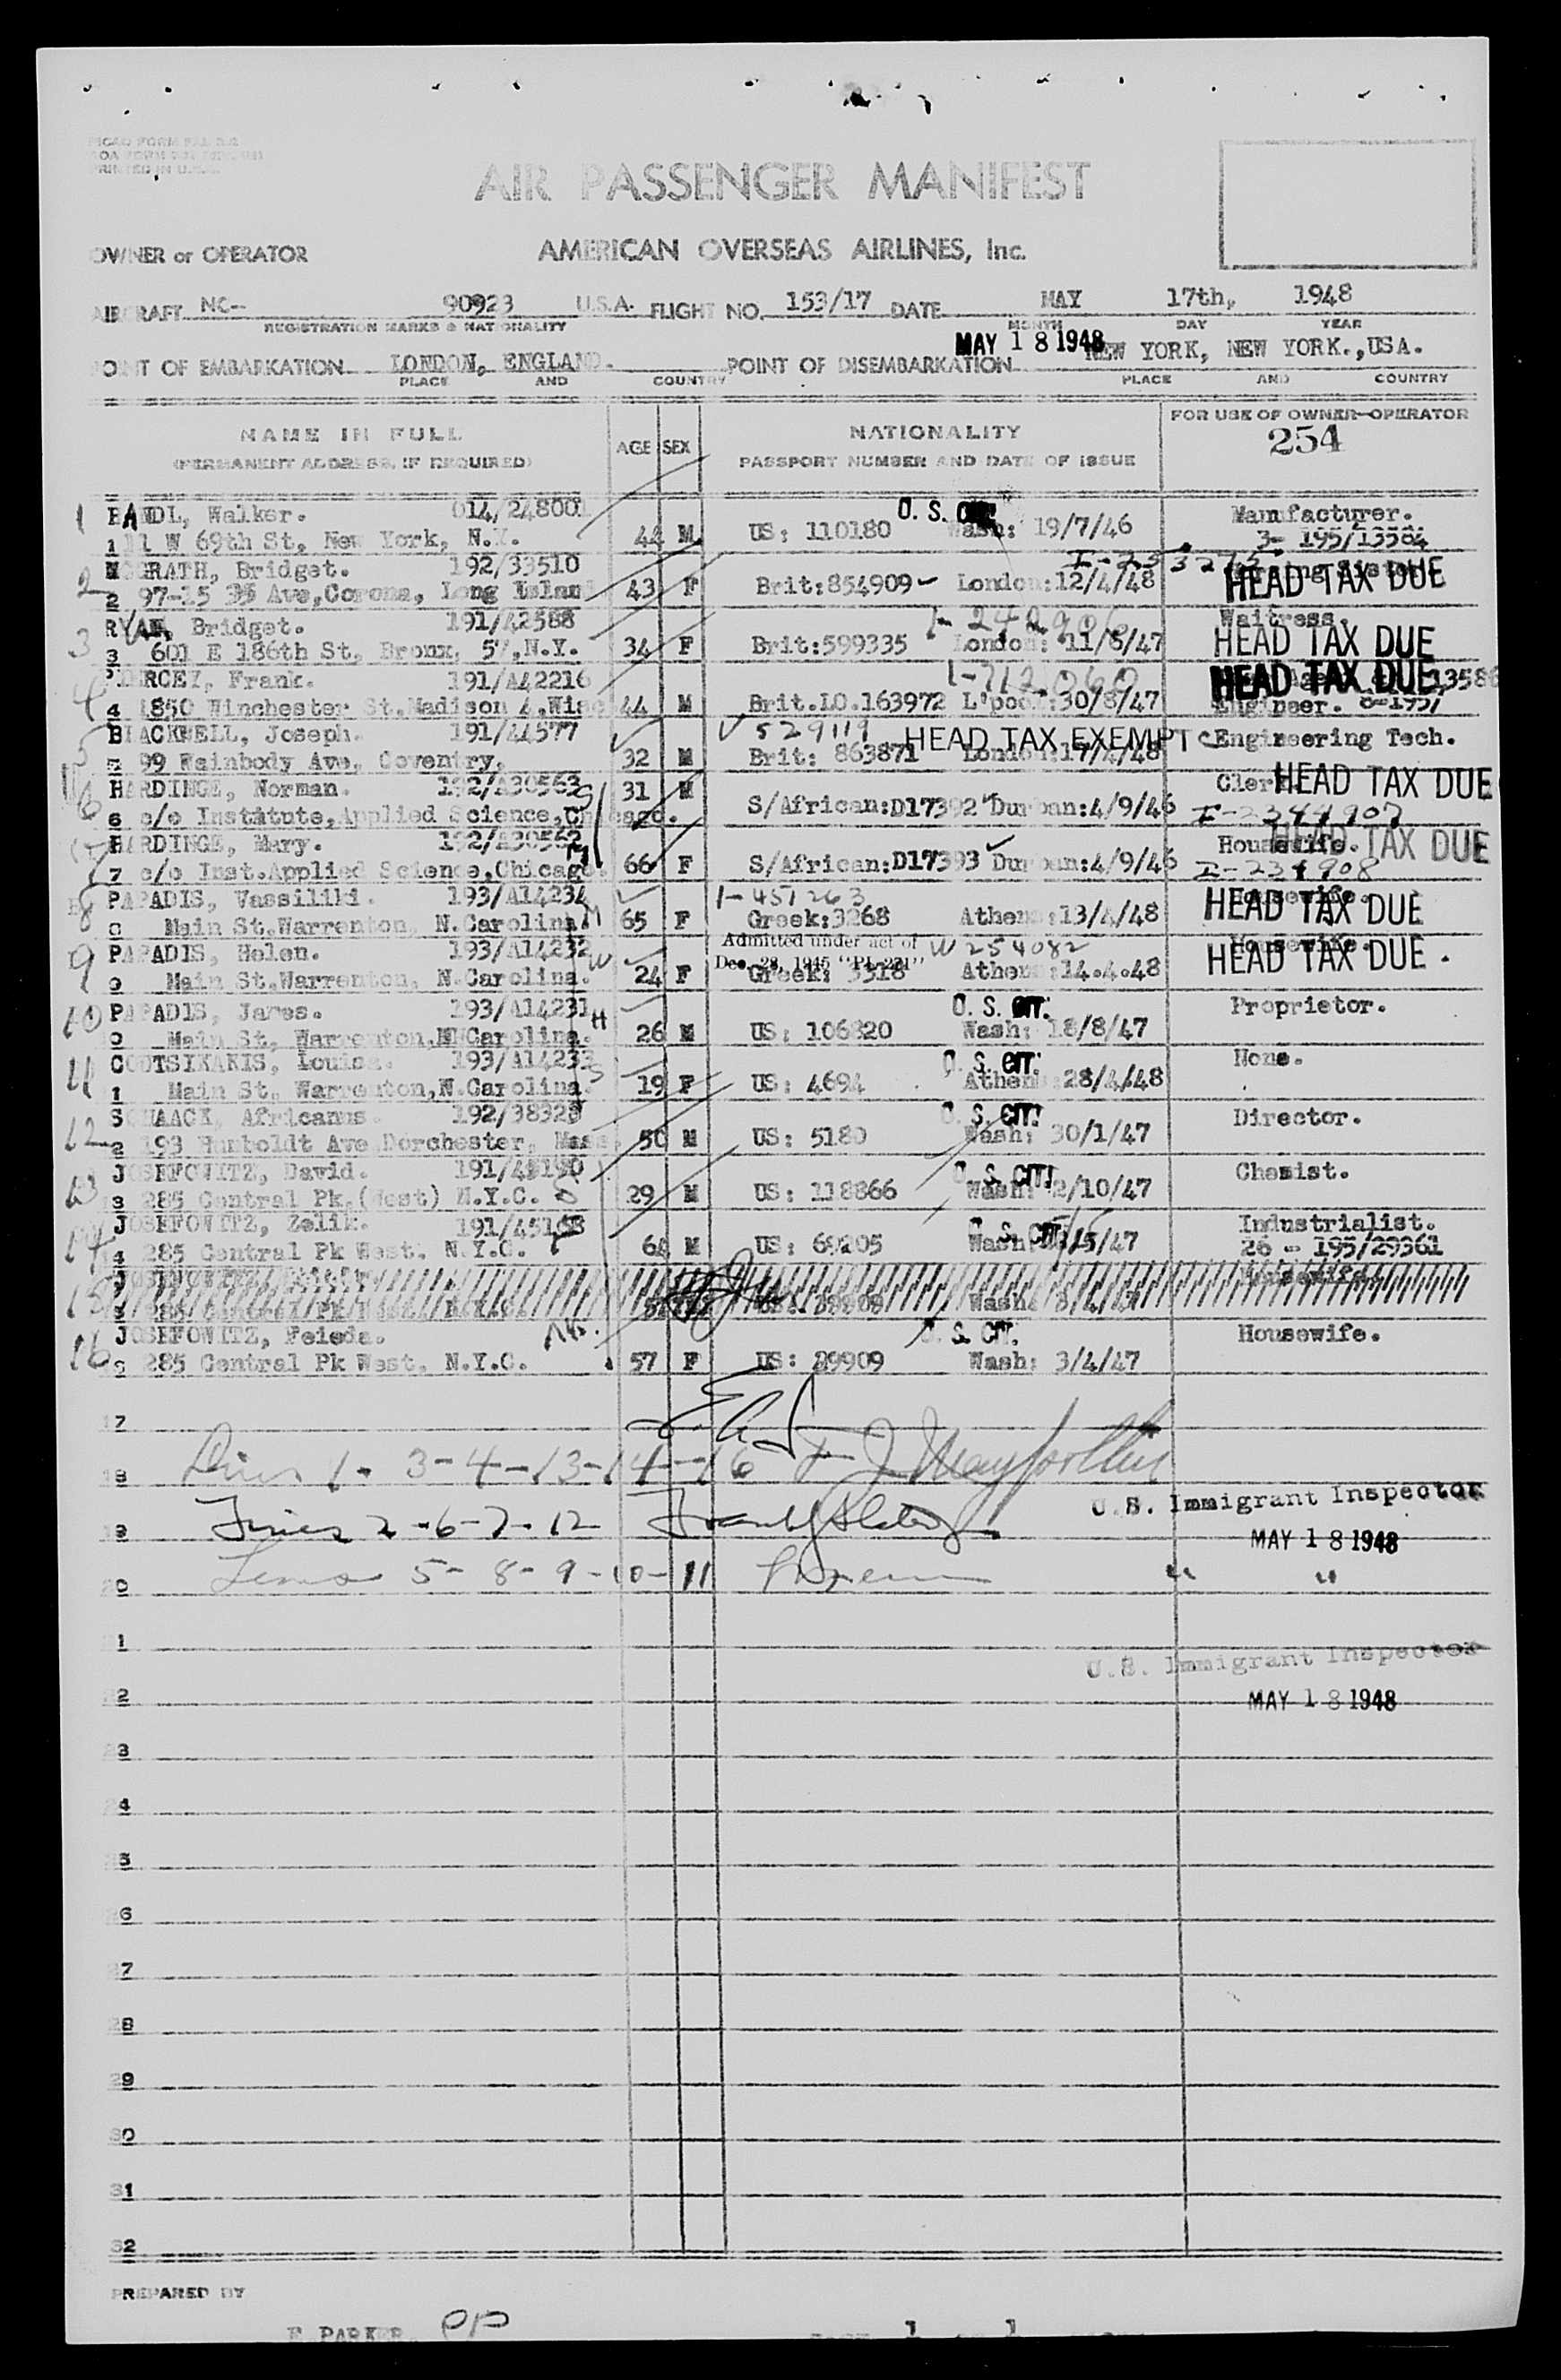 PRINTED IN U.S.A.
AIR PASSENGER MANIFEST
OWNER or OPERATOR AMERICAN OVERSEAS AIRLINES, Inc.
AIRCRAFT NC- 90923 U.S.A. FLIGHT NO. 153/17 DATE MAY 17th, 1948
REGISTRATION MARKS & NATIONALITY MONTH DAY YEAR
MAY 18 1948
POINT OF EMBARKATION LONDON, ENGLAND. POINT OF DISEMBARKATION NEW YORK, NEW YORK.,USA.
PLACE AND COUNTRY PLACE AND COUNTRY
NAME IN FULL AGE SEX NATIONALITY FOR USE OF OWNER-OPERATOR
(PERMANENT ADDRESS, IF REQUIRED) PASSPORT NUMBER AND DATE OF ISSUE 254
1 BANDL, Walker. 014/248001 U. S. CIT. Manufacturer.
1 11 W 69th St, New York, N.Y. 44 M US: 110180 Wash: 19/7/46 3- 195/13584
2 MCGRATH, Bridget. 192/33510 HEAD TAX DUE
2 97-15 Ave,Corona, Long 43 F Brit:854909 London:12/4/48
3 RYAN, Bridget. 191/42588 Waitress.
3 601 E 186th St, Bronx, 57,N.Y. 34 F Brit:599335 London: 11/8/47 HEAD TAX DUE
4 Frank. 191/A42216 HEAD TAX DUE 13586
4 1850 Winchester St,Madison 4,Wisc 44 M Brit.LO.163972 L'pool:30/8/47 Engineer.
5 BLACKWELL, Joseph. 191/44577 529119 HEAD TAX EXEMPT Engineering Tech.
99 Wainbody Ave, Coventry. 32 M Brit: 863871 London:17/4/48
6 HARDINGE, Norman. 192/A30563 31 M Clerk. HEAD TAX DUE
6 c/o Institute,Applied Science,Chicago. S/African:D17392 Durban:4/9/46
7 HARDINGE, Mary. 192/A30562 Housewife. HEAD TAX DUE
7 c/o Inst.Applied Science,Chicago. 66 F S/African:D17393 Durban:4/9/46 I-234908
8 PAPADIS, Vassiliki. 193/A14234 1-457263 Housewife.
Main St,Warrenton, N.Carolina. 65 F Greek:3268 Athens:13/4/48 HEAD TAX DUE
9 PAPADIS, Helen. 193/A14232 Admitted under act of W 254082 Housewife.
9 Main St,Warrenton, N.Carolina. 24 F Dec. 28, 1945 "PL-271" Greek: 3518 Athens:14.4.48 HEAD TAX DUE.
10 PAPADIS, James. 193/A14231 H U. S. CIT. Proprietor.
Main St, Warrenton,N.Carolina. 26 M US: 106820 Wash: 18/8/47
11 COOTSIKAKIS, Louise. 193/A14233 U. S. CIT. None.
1 Main St, Warrenton,N.Carolina. 19 F US: 4694 Athens:28/4/48
12 SCHAACK, Africanus. 192/38328 U. S. CIT. Director.
2 193 Humboldt Ave,Dorchester, Mass. 50 M US: 5180 Wash: 30/1/47
13 JOSEFOWITZ, David. 191/45190 U. S. CIT. Chemist.
3 285 Central Pk.(West) N.Y.C. 29 M US: 118866 Wash: 2/10/47
14 JOSEFOWITZ, Zelik. U. S. CIT. Industrialist.
4 285 Central Pk West, N.Y.C. M US: 69205 Wash: 5/47 26 - 195/29361
15
16 JOSEFOWITZ, Feieda. U. S. CIT. Housewife.
285 Central Pk West, N.Y.C. 57 F US: 29909 Wash: 3/4/47
17
18 1. 3-4-13-14-16
U.S. Immigrant Inspector
19 2-6-7-12
MAY 18 1948
20 5-8-9-10-11 " "
21
U.S. Immigrant Inspector
22
MAY 18 1948
23
24
25
26
27
28
29
30
31
32
PREPARED BY
E PARKER. PP